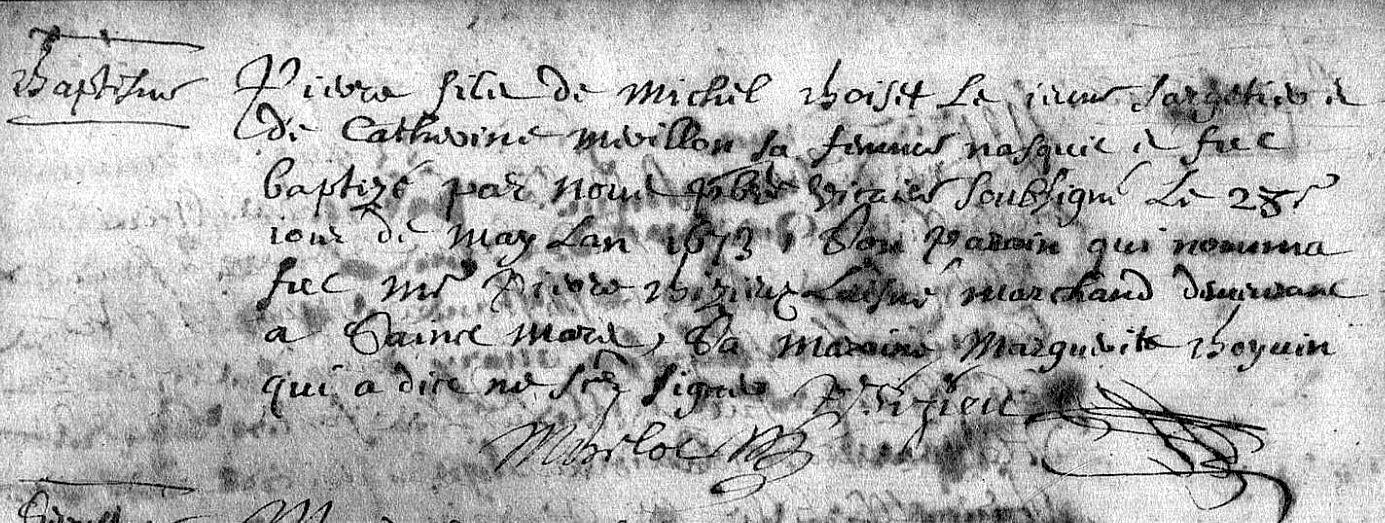 Baptisme
Pierre filz de Michel Boiset le jeune sargetier &
de Catherine Mevillon sa femme nasquit & fut
baptizé par nous pbre vicaire soubsigné Le 28e
iour de May Lan 1673, Son Parain qui nomma
fut Mr Pierre Bizieux Laisné marchand demeurant
a Sainct Mard, Sa Maraine Marguerite Boyvin
qui a dict ne scz signer P Bizieu